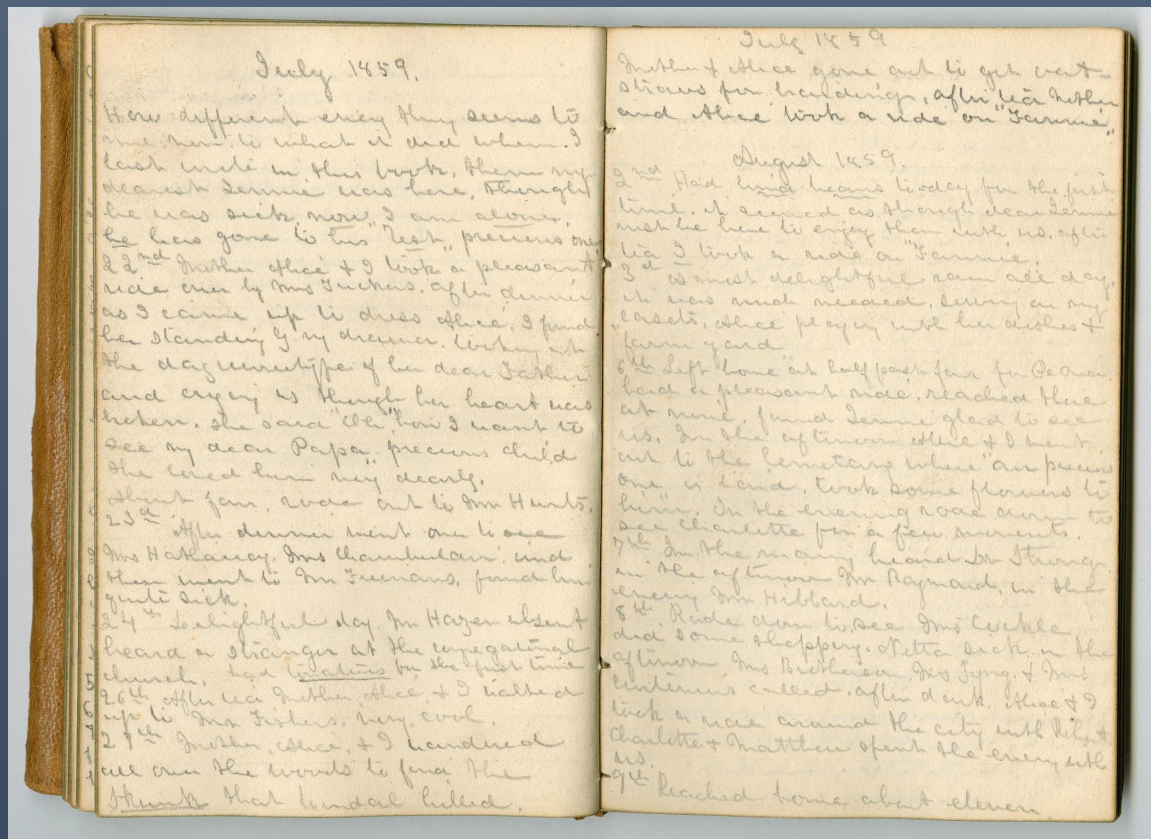 July 1859.
How different every thing seems to
me now to what it did when I
last wrote in this book, then my
dearest Jennie was here, though
he was sick, now I am alone,
he has gone to his "rest", precious one,
22nd Mother Alice & I took a pleasant
ride over by Mrs Tuckers. After dinner
as I came up to dress Alice, I found
her standing by my drawer, looking at
the daguerreotype of her dear Father
and crying as though her heart was
broken. she said "Oh" how I want to
see my dear Papa, precious child
she loved him very dearly.
About four, rode out to Mr Hunts.
23d After dinner went over to see
Mrs Hathaway, Mrs Chamberlain and
then went to Mr Freemans, found him
quite sick.
24th Delightful day, Mr Hazen absent
heard a stranger at the congregational
church. had tomatoes for the first time
26th After tea Mother, Alice & I walked
up to Mrs Fishers, very cool.
27th Mother, Alice, & I wandered
all over the woods to find the
skunk that Kendal killed.
July 1859
Mother & Alice gone out to get oat
straws for braiding, after tea Mother
and Alice took a ride on "Fannie"
August 1859.
2nd Had beans today for the first
time, it seemed as though dear Jennie
must be here to enjoy them with us, after
tea I took a ride on "Fannie".
3d A most delightful rain all day,
it was much needed, sewing on my
corsets, Alice playing with her dishes &
"farm yard"
6th Left home at half past four for Peoria.
had a pleasant ride, reached there
at nine, found Jennie glad to see
us. In the afternoon Alice & I went
out to the Cemetary where "our precious
one is laid, took some flowers to
him". In the evening rode down to
see Charlotte for a few moments.
7th In the morning heard Dr Strong.
in the afternoon Mr Raymard, in the
evening Mr Hibbard.
8th. Rode down to see Mrs Cockle
did some shopping. Netta sick, in the
afternoon Mrs Brotherson, Mrs Tyng. & Mrs
called. after dark, Alice & I
took a ride around the city with Robert.
Charlotte & Matthew spent the evening with
us.
9th Reached home about eleven